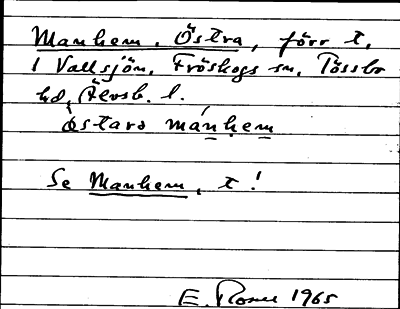 Manhem, Östra, förr t.
1 Vallsjön, Fröskogs sn, Tössbo
hd, Älvsb. l.
östarə mánhem
Se Manhem, t!
E. Rosell 1965